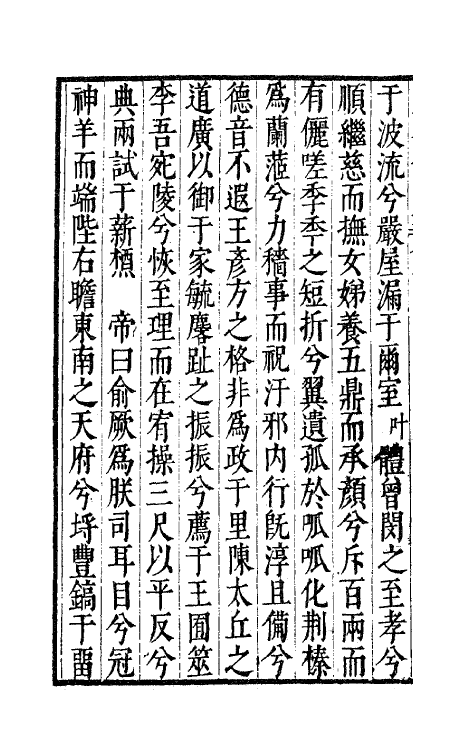 于波流兮嚴屋漏于爾室叶體曾閔之至孝兮
順繼慈而撫女娣養五鼎而承顏兮斥百兩而
有儷嗟季季之短折兮翼遺孤於呱呱化荆榛
為蘭茝兮力穡事而祝汙邪内行旣淳且備兮
德音不遐王彥方之格非為政于里陳太丘之
道廣以御于家毓麐趾之振振兮薦于王國筮
李吾宛陵兮恢至理而在宥操三尺以平反兮
典兩試于薪槱 帝曰俞厥為朕司耳目兮冠
神羊而端陛右瞻東南之天府兮埒豐鎬于畱